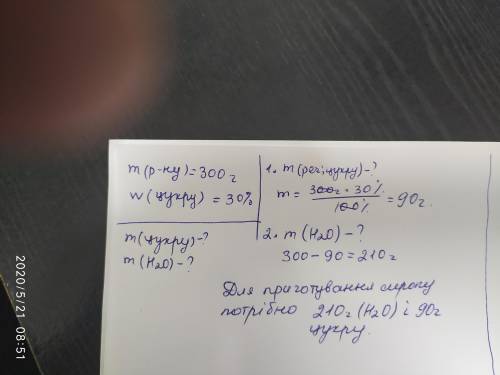 m(р-ну)=300г
w(цукру) = 30%
m(цукру)-?
m(H₂O)-?
1. m(реч;цукру)-?
m = 300г · 30% / 100% = 90г.
2. m(H₂O)-?
300-90=210г
Для приготування сиропу
потрібно 210г (H₂O) і 90г
цукру.
2020/5/21 08:51